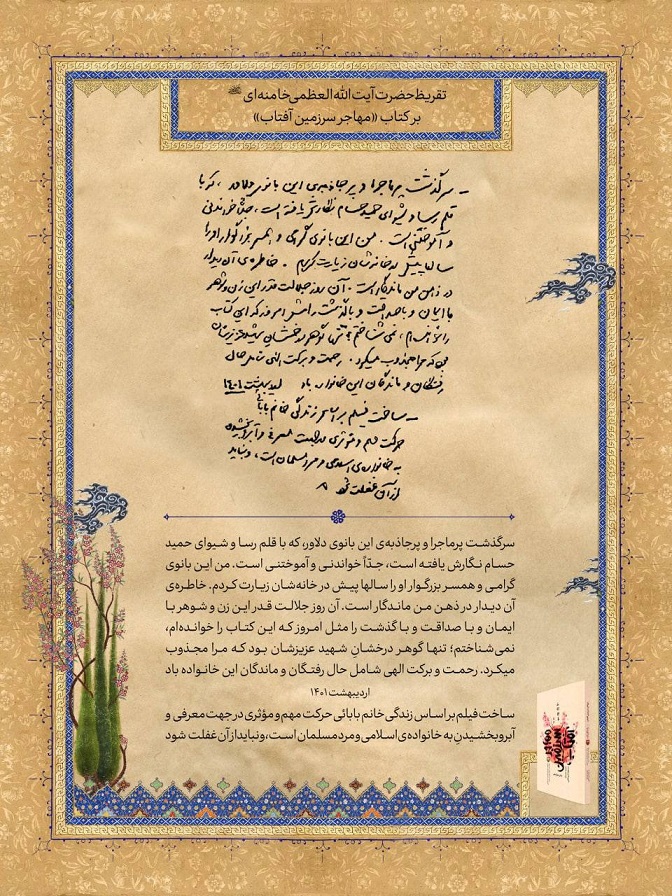 تقریظ حضرت آیت الله العظمی خامنه‌ای
بر کتاب «مهاجر سرزمین آفتاب»
ـ سرگذشت پرماجرا و پرجاذبه‌ی این بانوی دلاور، که با
قلم رسا و شیوای حمید حسام نگارش یافته است، جدّاً خواندنی
و آموختنی است. من این بانوی گرامی و همسر بزرگوار او را
سالها پیش در خانه‌شان زیارت کردم. خاطره‌ی آن دیدار
در ذهن من ماندگار است. آن روز جلالت قدر این زن و شوهر
با ایمان و با صداقت و با گذشت را مثل امروز که این کتاب
را خوانده‌ام، نمی‌شناختم؛ تنها گوهر درخشان شهید عزیزشان
بود که مرا مجذوب میکرد. رحمت و برکت الهی شامل حال
رفتگان و ماندگان این خانواده باد اردیبهشت ۱۴۰۱
ـ ساخت فیلم بر اساس زندگی خانم بابائی
حرکت مهم و مؤثری در جهت معرفی و آبروبخشیدن
به خانواده‌ی اسلامی و مرد مسلمان است، و نباید
از آن غفلت شود
سرگذشت پرماجرا و پرجاذبه‌ی این بانوی دلاور، که با قلم رسا و شیوای حمید
حسام نگارش یافته است، جدّاً خواندنی و آموختنی است. من این بانوی
گرامی و همسر بزرگوار او را سالها پیش در خانه‌شان زیارت کردم. خاطره‌ی
آن دیدار در ذهن من ماندگار است. آن روز جلالت قدر این زن و شوهر با
ایمان و با صداقت و با گذشت را مثل امروز که این کتاب را خوانده‌ام،
نمی‌شناختم؛ تنها گوهر درخشانِ شهید عزیزشان بود که مرا مجذوب
میکرد. رحمت و برکت الهی شامل حال رفتگان و ماندگان این خانواده باد
اردیبهشت ۱۴۰۱
ساخت فیلم بر اساس زندگی خانم بابائی حرکت مهم و مؤثری در جهت معرفی و
آبروبخشیدنِ به خانواده‌ی اسلامی و مرد مسلمان است، و نباید از آن غفلت شود